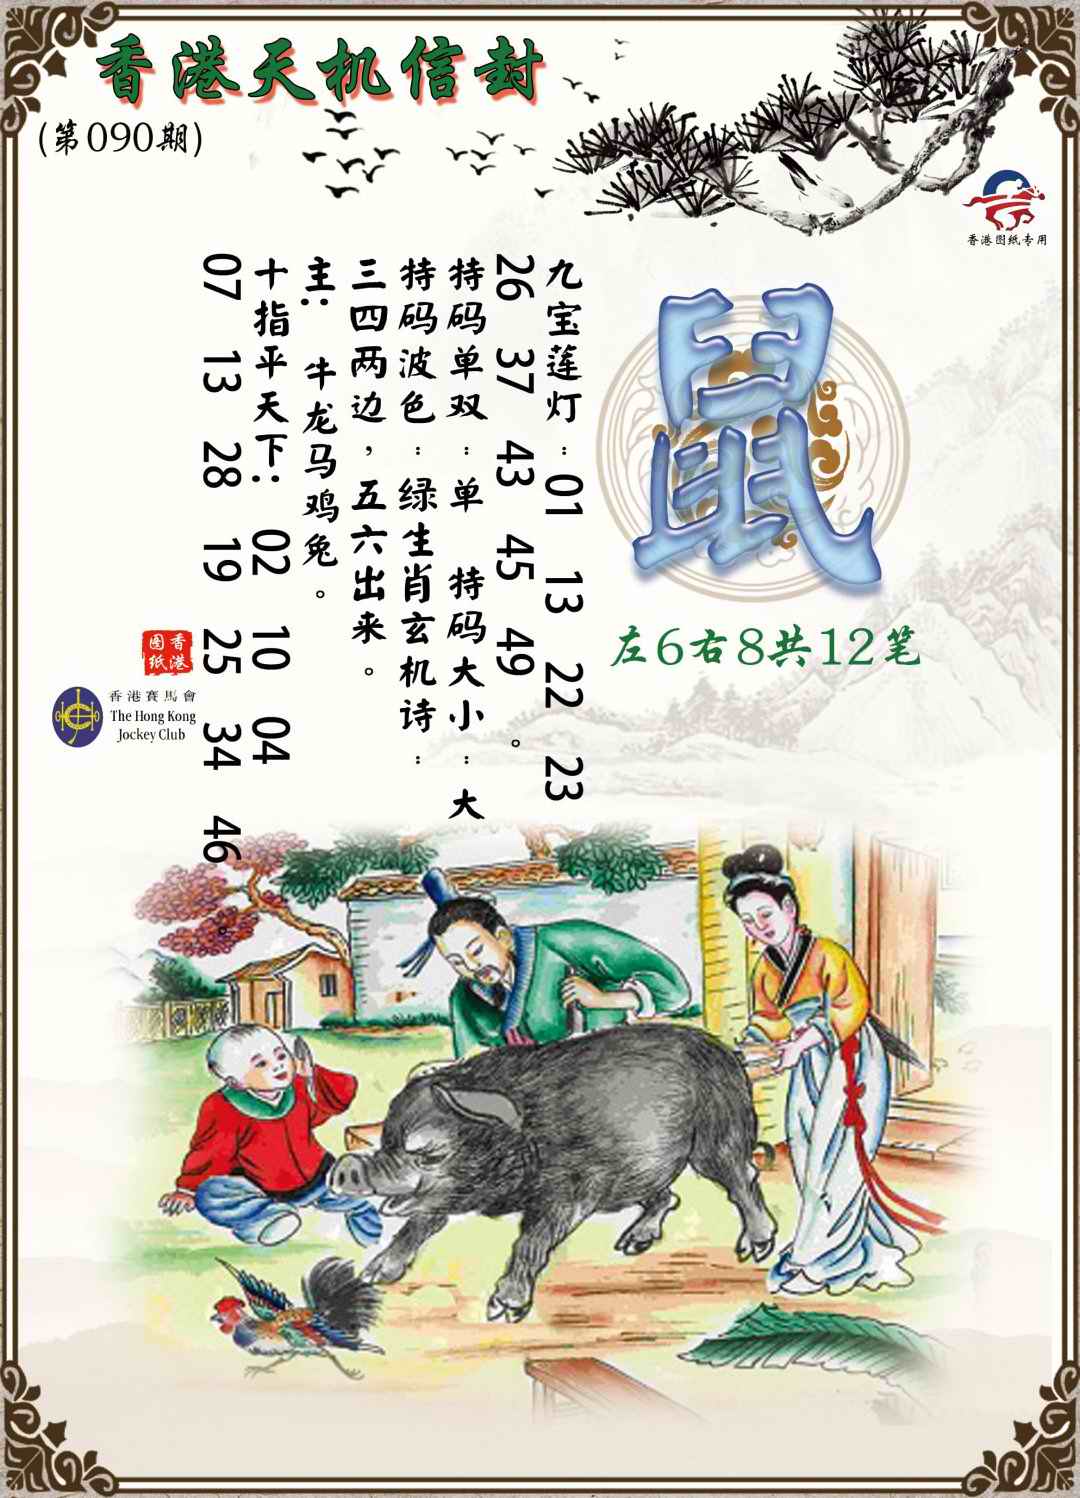 香港天机信封
(第090期)
香港图纸专用
鼠
左6右8共12笔
九宝莲灯:01 13 22 23
26 37 43 45 49。
特码单双:单 特码大小:大
特码波色:绿生肖玄机诗:
三四两边，五六出来。
主: 牛龙马鸡兔。
十指平天下: 02 10 04
07 13 28 19 25 34 46
。
香港
图纸
香港賽馬會
The Hong Kong
Jockey Club